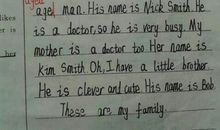 aged
likes age, man. His name is Nick Smith. He
er is is a doctor, so he is very busy. My
mother is a doctor too Her name is
her kim Smith Oh, I have a little brother.
He is clever and cute His name is Bob.
These are my family.